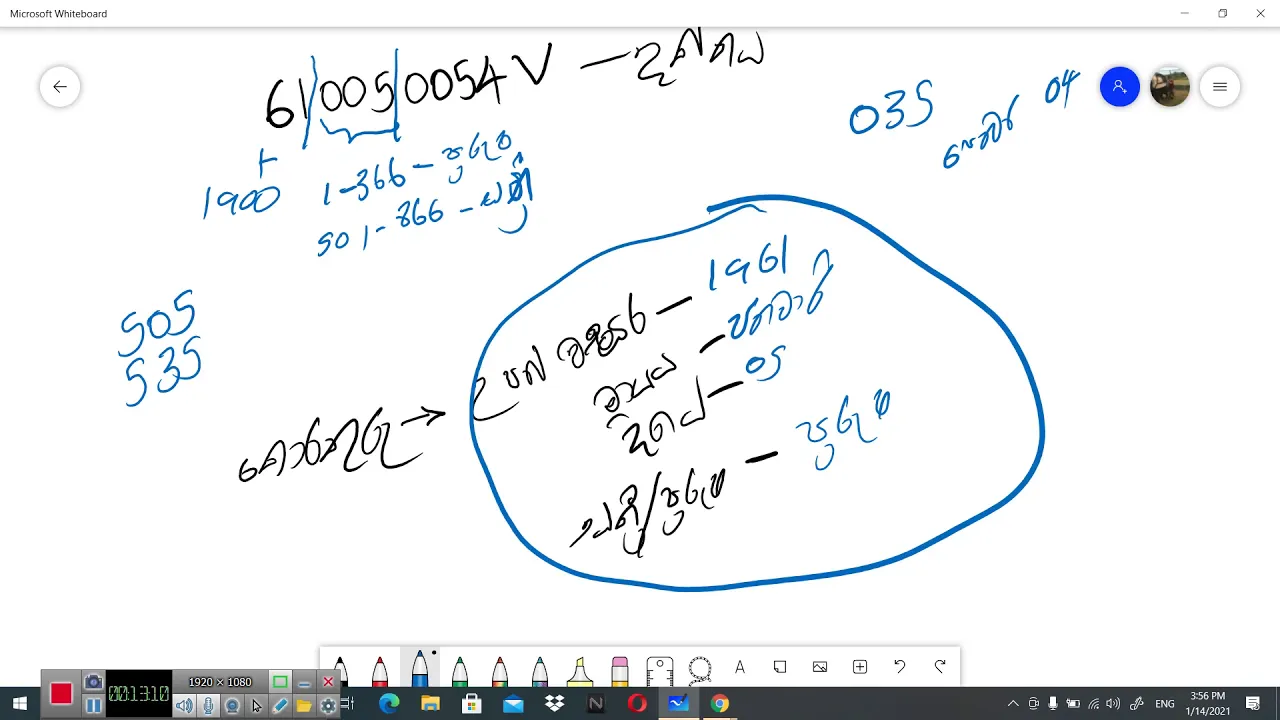 Microsoft Whiteboard
61 005 0054V – දත්තය
035
පෙබර 04
+
1900
1-366 – පුරුෂ
501-866 – ස්ත්‍රී
505
535
තොරතුරු →
උපන් වසර – 1961
මාසය – ජනවාරි
දිනය – 05
ස්ත්‍රී/පුරුෂ – පුරුෂ
A
00:13:10
1920 × 1080
N
ENG
3:56 PM
1/14/2021